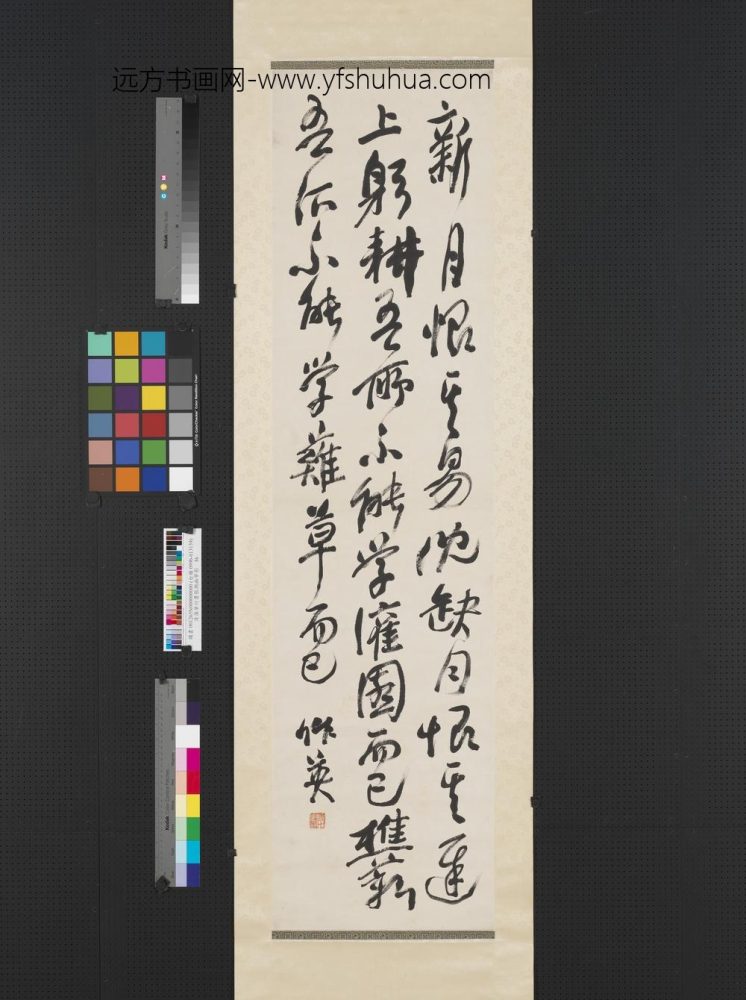 远方书画网-www.yfshuhua.com
新月恨其易沈缺月恨其遲
上躬耕吾所不能学灌園而已樵薪
吾所不能学薙草而已 作英
Kodak
Kodak